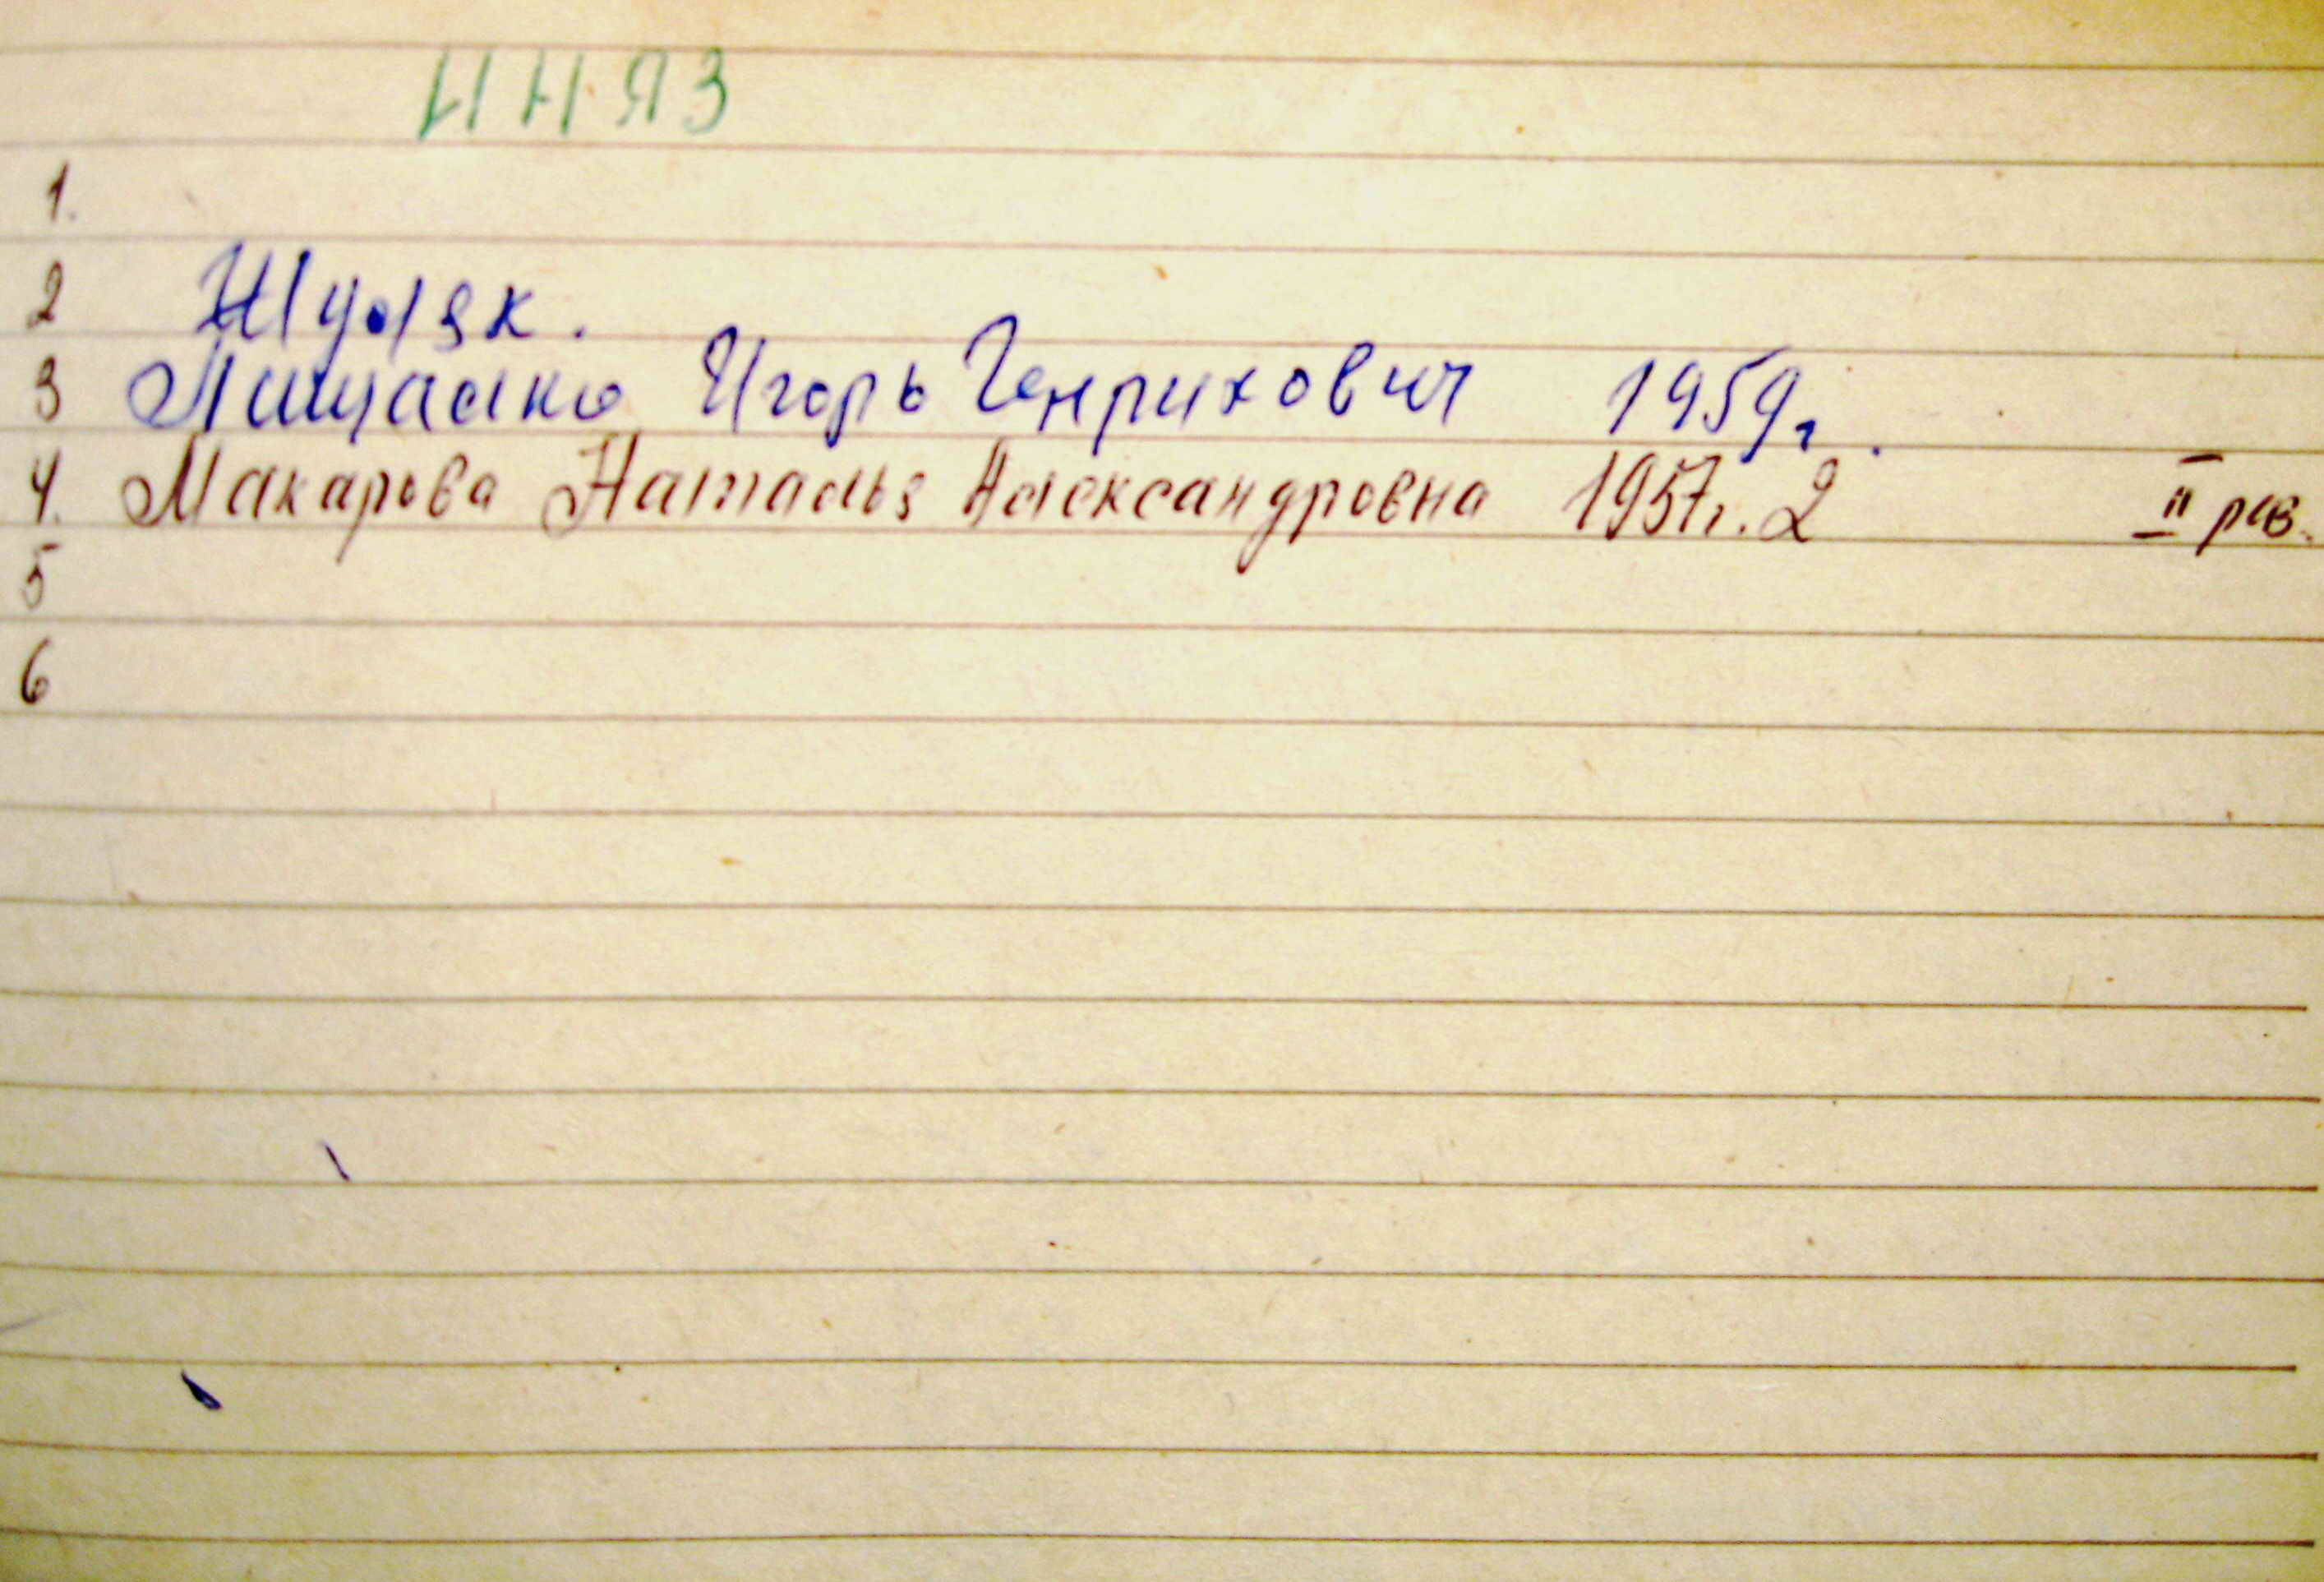 ИНЯЗ
1.
2 Жуляк.
3 Игорь Генрихович 1959г.
4. Макарова Наталья Александровна 1957г. 2 II рев.
5
6